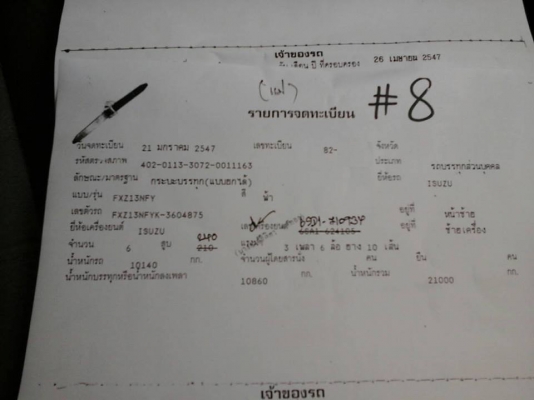 เจ้าของรถ
วันเดือน ปี ที่ครอบครอง 26 เมษายน 2547
#8
รายการจดทะเบียน
วันจดทะเบียน 21 มกราคม 2547 เลขทะเบียน 82- จังหวัด
รหัสตรวจสภาพ 402-0113-3072-0011163 ประเภท รถบรรทุกส่วนบุคคล
ลักษณะ/มาตรฐาน กระบะบรรทุก(แบบยกได้) ยี่ห้อรถ ISUZU
แบบ/รุ่น FXZ13NFY สี ฟ้า
เลขตัวรถ FXZ13NFYX-3604875 อยู่ที่ หน้าซ้าย
ยี่ห้อเครื่องยนต์ ISUZU เลขเครื่องยนต์ 6SA1-624105 อยู่ที่ ซ้ายเครื่อง
จำนวน 6 สูบ 210 3 เพลา 6 ล้อ ยาง 10 เส้น
น้ำหนักรถ 10140 กก. จำนวนผู้โดยสารนั่ง คน ยืน คน
น้ำหนักบรรทุกหรือน้ำหนักลงเพลา 10860 กก. น้ำหนักรวม 21000 กก.
เจ้าของรถ